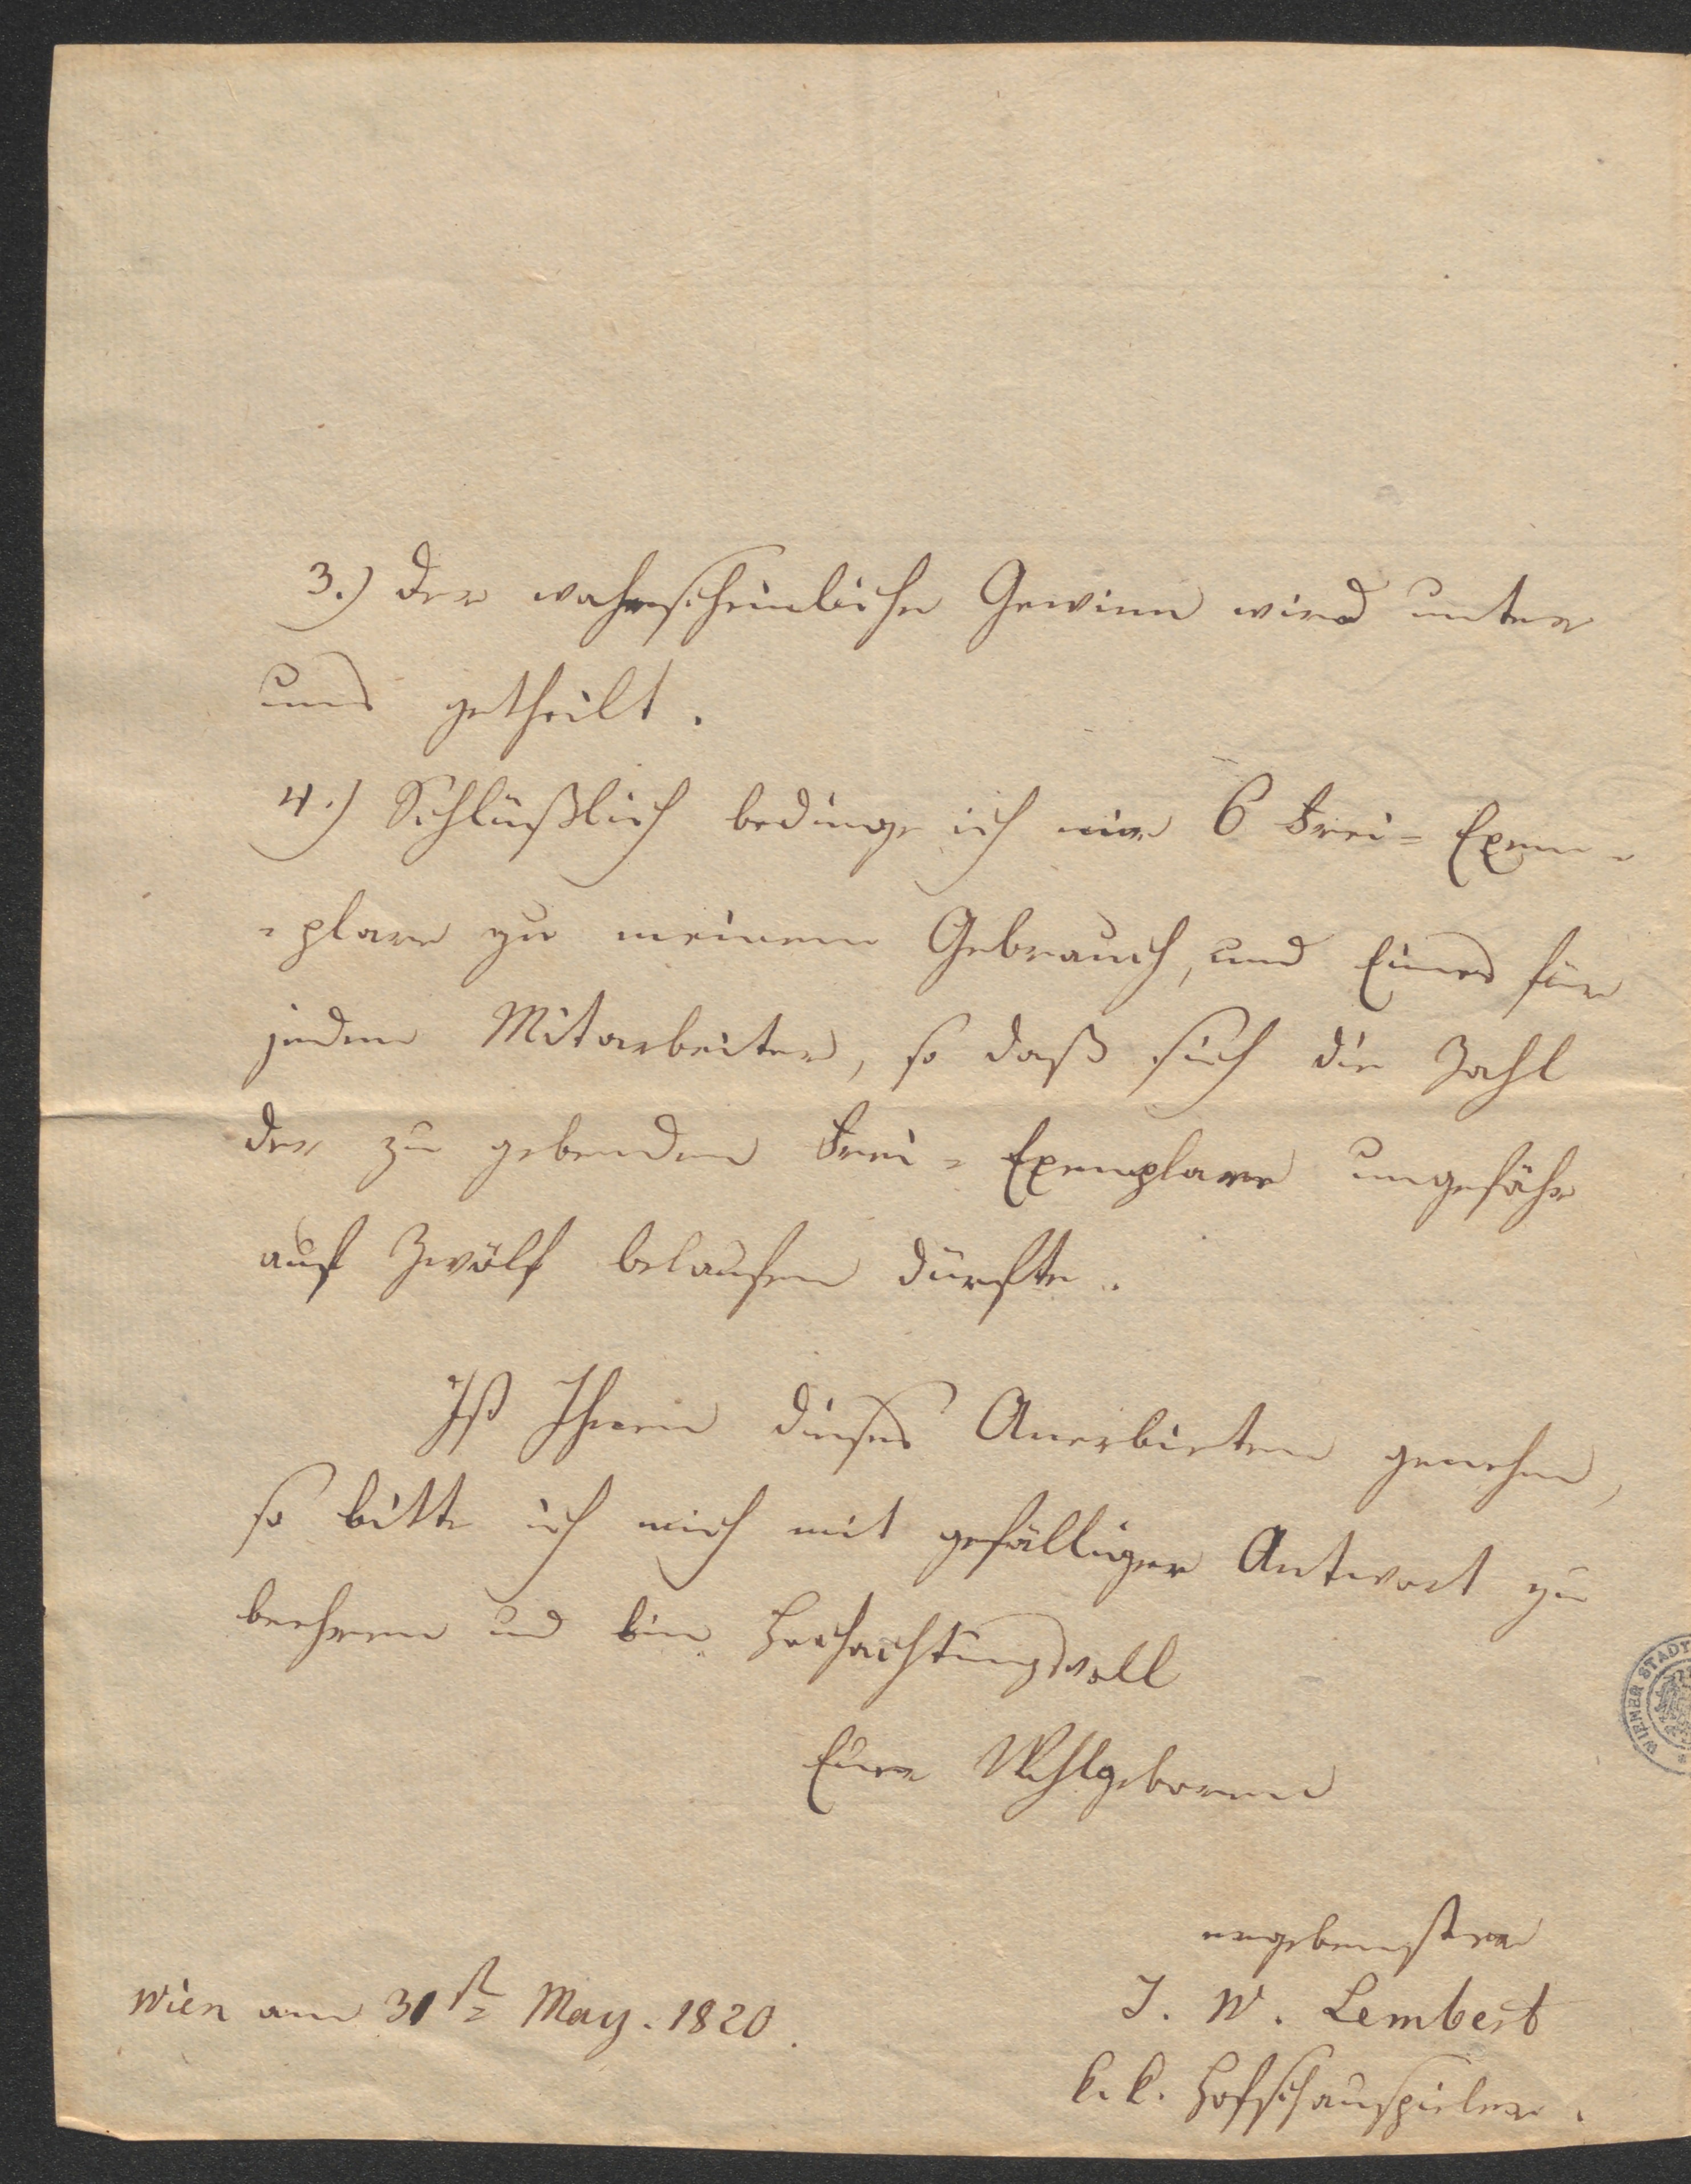 3.) Der wahrscheinliche Gewinn wird unter
uns getheilt.
4.) Schlüßlich bedinge ich mir 6 Frei= Exem=
=plare zu meinem Gebrauch, und Eines für
jeden Mitarbeiter, so daß sich die Zahl
der zu gebenden Frei= Exemplare ungefähr
auf Zwölf belaufen dürfte.
Ist Ihnen dieses Anerbieten genehm,
so bitte ich mich mit gefälliger Antwort zu
beehren und bin Hochachtungsvoll
Euer Wohlgeboren
ergebenster
Wien am 31st May. 1820.
J. W. Lembert
k. k. Hofschauspieler.
WIENER STADT